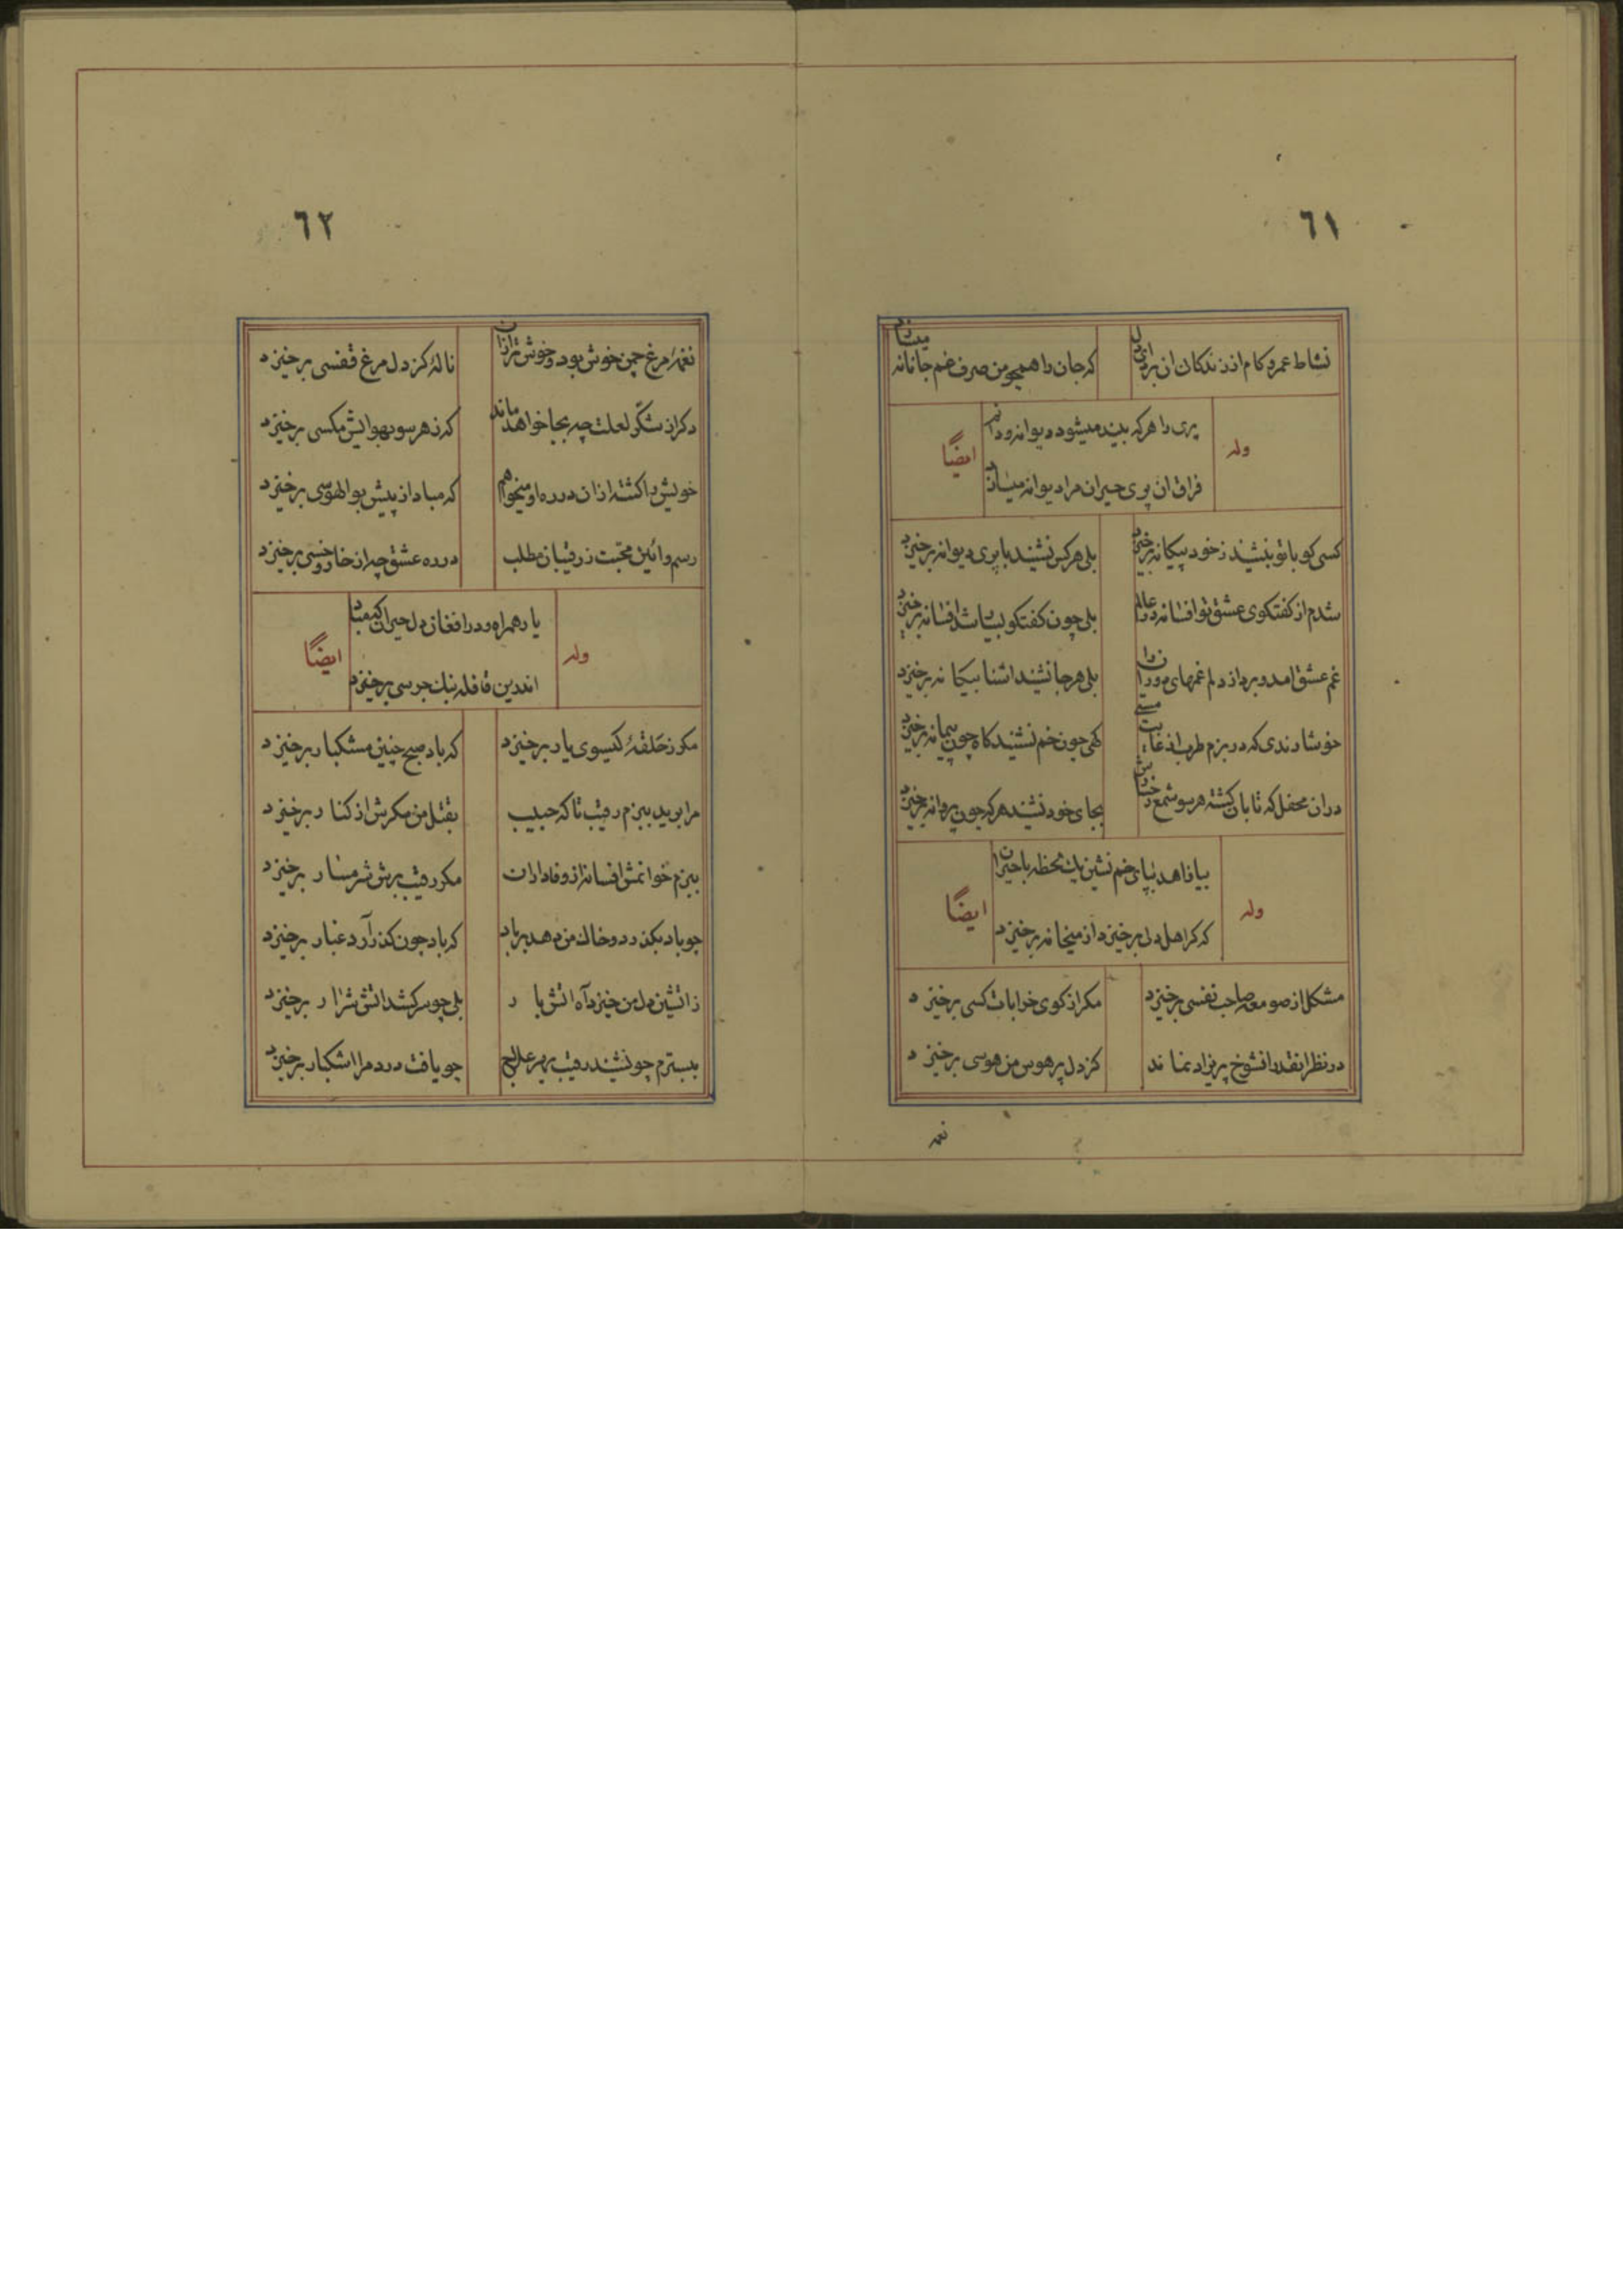 ٦١
نشاط عمر و کام از زندکان ان برد ای دل
که جان را همچو من صرف غم جانانه میسازد
وله
پری را هرکه بیند میشود دیوانه و دانم
فراق ان پری حیران مرا دیوانه میسازد
ایضًا
کسی کو با تو بنشیند ز خود بیکانه برخیزد
بلی هر کس نشیند با پری دیوانه برخیزد
شدم از کفتکوی عشق تو افسانه در عالم
بلی چون کفتکو بسیار شد افسانه برخیزد
غم عشق امد و برد از دلم غمهای دوران را
بلی هر جا نشیند اشنا بیکانه برخیزد
خوشا رندی که در بزم طرب از غایت مستی
کهی چون خم نشیند کاه چون پیمانه برخیزد
دران محفل که تابان کشته هر سو شمع رخسارش
بجای خود نشیند هرکه چون پروانه برخیزد
وله
بیا زاهد بپای خم نشین یك لحظه با حیران
که کر اهل دلی برخیزد از میخانه برخیزد
ایضًا
مشکل از صومعه صاحب نفسی برخیزد
مکر از کوی خرابات کسی برخیزد
در نظر انقدر انشوخ پریزاد نماند
کز دل پر هوس من هوسی برخیزد
نغمه
٦٢
نغمهٔ مرغ چمن خوش بود و خوشتر ازان
نالهٔ کز دل مرغ قفسی برخیزد
دکران شکّر لعلت چه بجا خواهد ماند
که ز هر سو بهوایش مکسی برخیزد
خویش را کشته ازان در ره او میخواهم
که مباد از پیش بوالهوسی برخیزد
رسم و ائین محبّت ز رقیبان مطلب
در ره عشق چه از خار و خسی برخیزد
وله
یار همراه و در افغان دل حیران که مباد
اندرین قافله بانك جرسی برخیزد
ایضًا
مکر ز حَلقهٔ کیسوی یار برخیزد
که باد صبح چنین مشکبار برخیزد
مرا برید ببزم رقیب تا که حبیب
بقتل من مکرش از کنار برخیزد
ببزم خوانمش افسانه از وفاداران
مکر رقیب برش شرمسار برخیزد
چو باد بکذرد و خاك من دهد بر باد
که باد چون کذرآرد غبار برخیزد
ز اتشین دل من خیزد آه اتش بار
بلی چو سر کشد اتش شرار برخیزد
ببسترم چو نشیند رقیب بهر علاج
چو یافت درد مرا اشکبار برخیزد